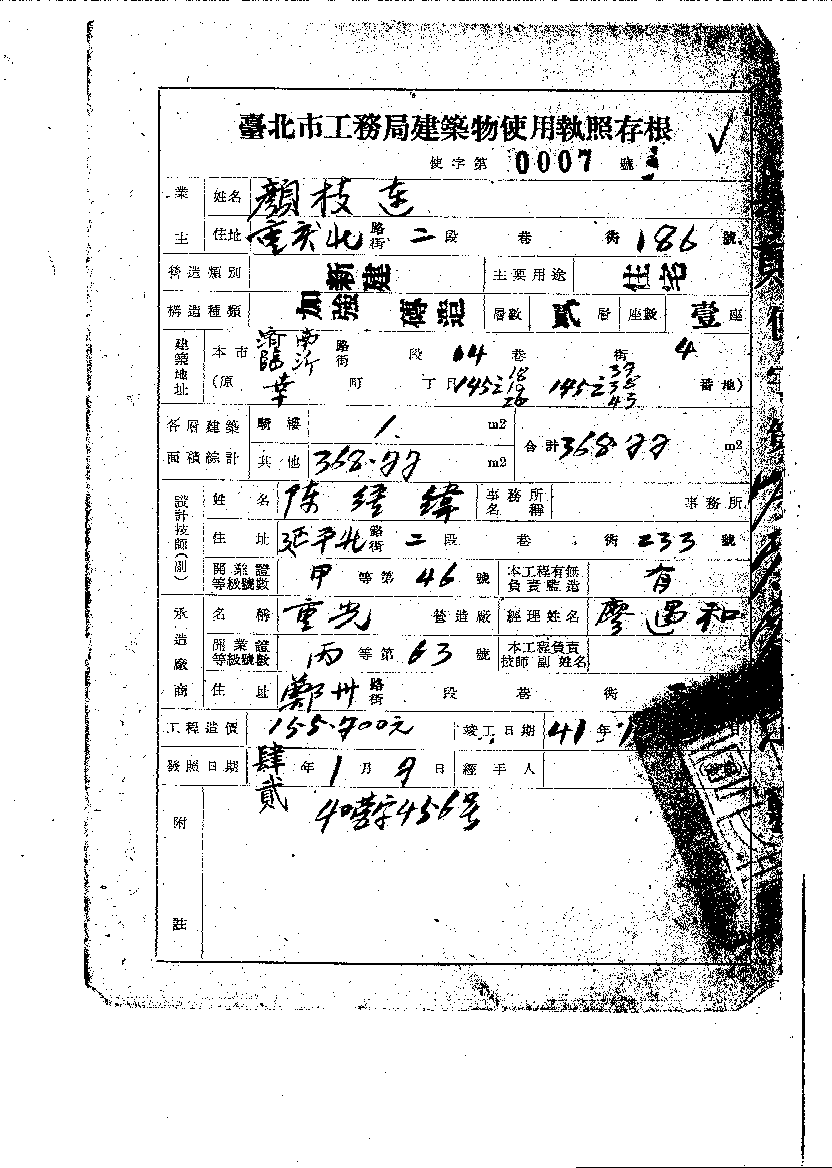 臺北市工務局建築物使用執照存根
使字第 0007 號
業主 姓名 顏枝連
住址 重慶北 路街 二 段 巷 衖 186 號
營造類別 新建 主要用途 住宅
構造種類 加強磚造 層數 貳 層 座數 壹 座
建築地址 本市 路街 段 14 巷 衖 4
(原 幸 町 丁目 145之 18 19 20 145之 43 番地)
各層建築面積綜計 騎樓 1. m2
其他 358.77 m2 合計 358.77 m2
設計技師(副) 姓名 陳經緯 事務所名稱 事務所
住址 延平北 路街 二 段 巷 衖 233 號
開業證等級號數 甲 等第 46 號 本工程有無負責監造 有
承造廠商 名稱 重光 營造廠 經理姓名 廖遇和
開業證等級號數 丙 等第 63 號 本工程負責技師副姓名
住址 鄭州 路街 段 巷 衖
工程造價 155.700元 竣工日期 41年
發照日期 肆貳 年 1 月 9 日 經手人
附註 40營字456号